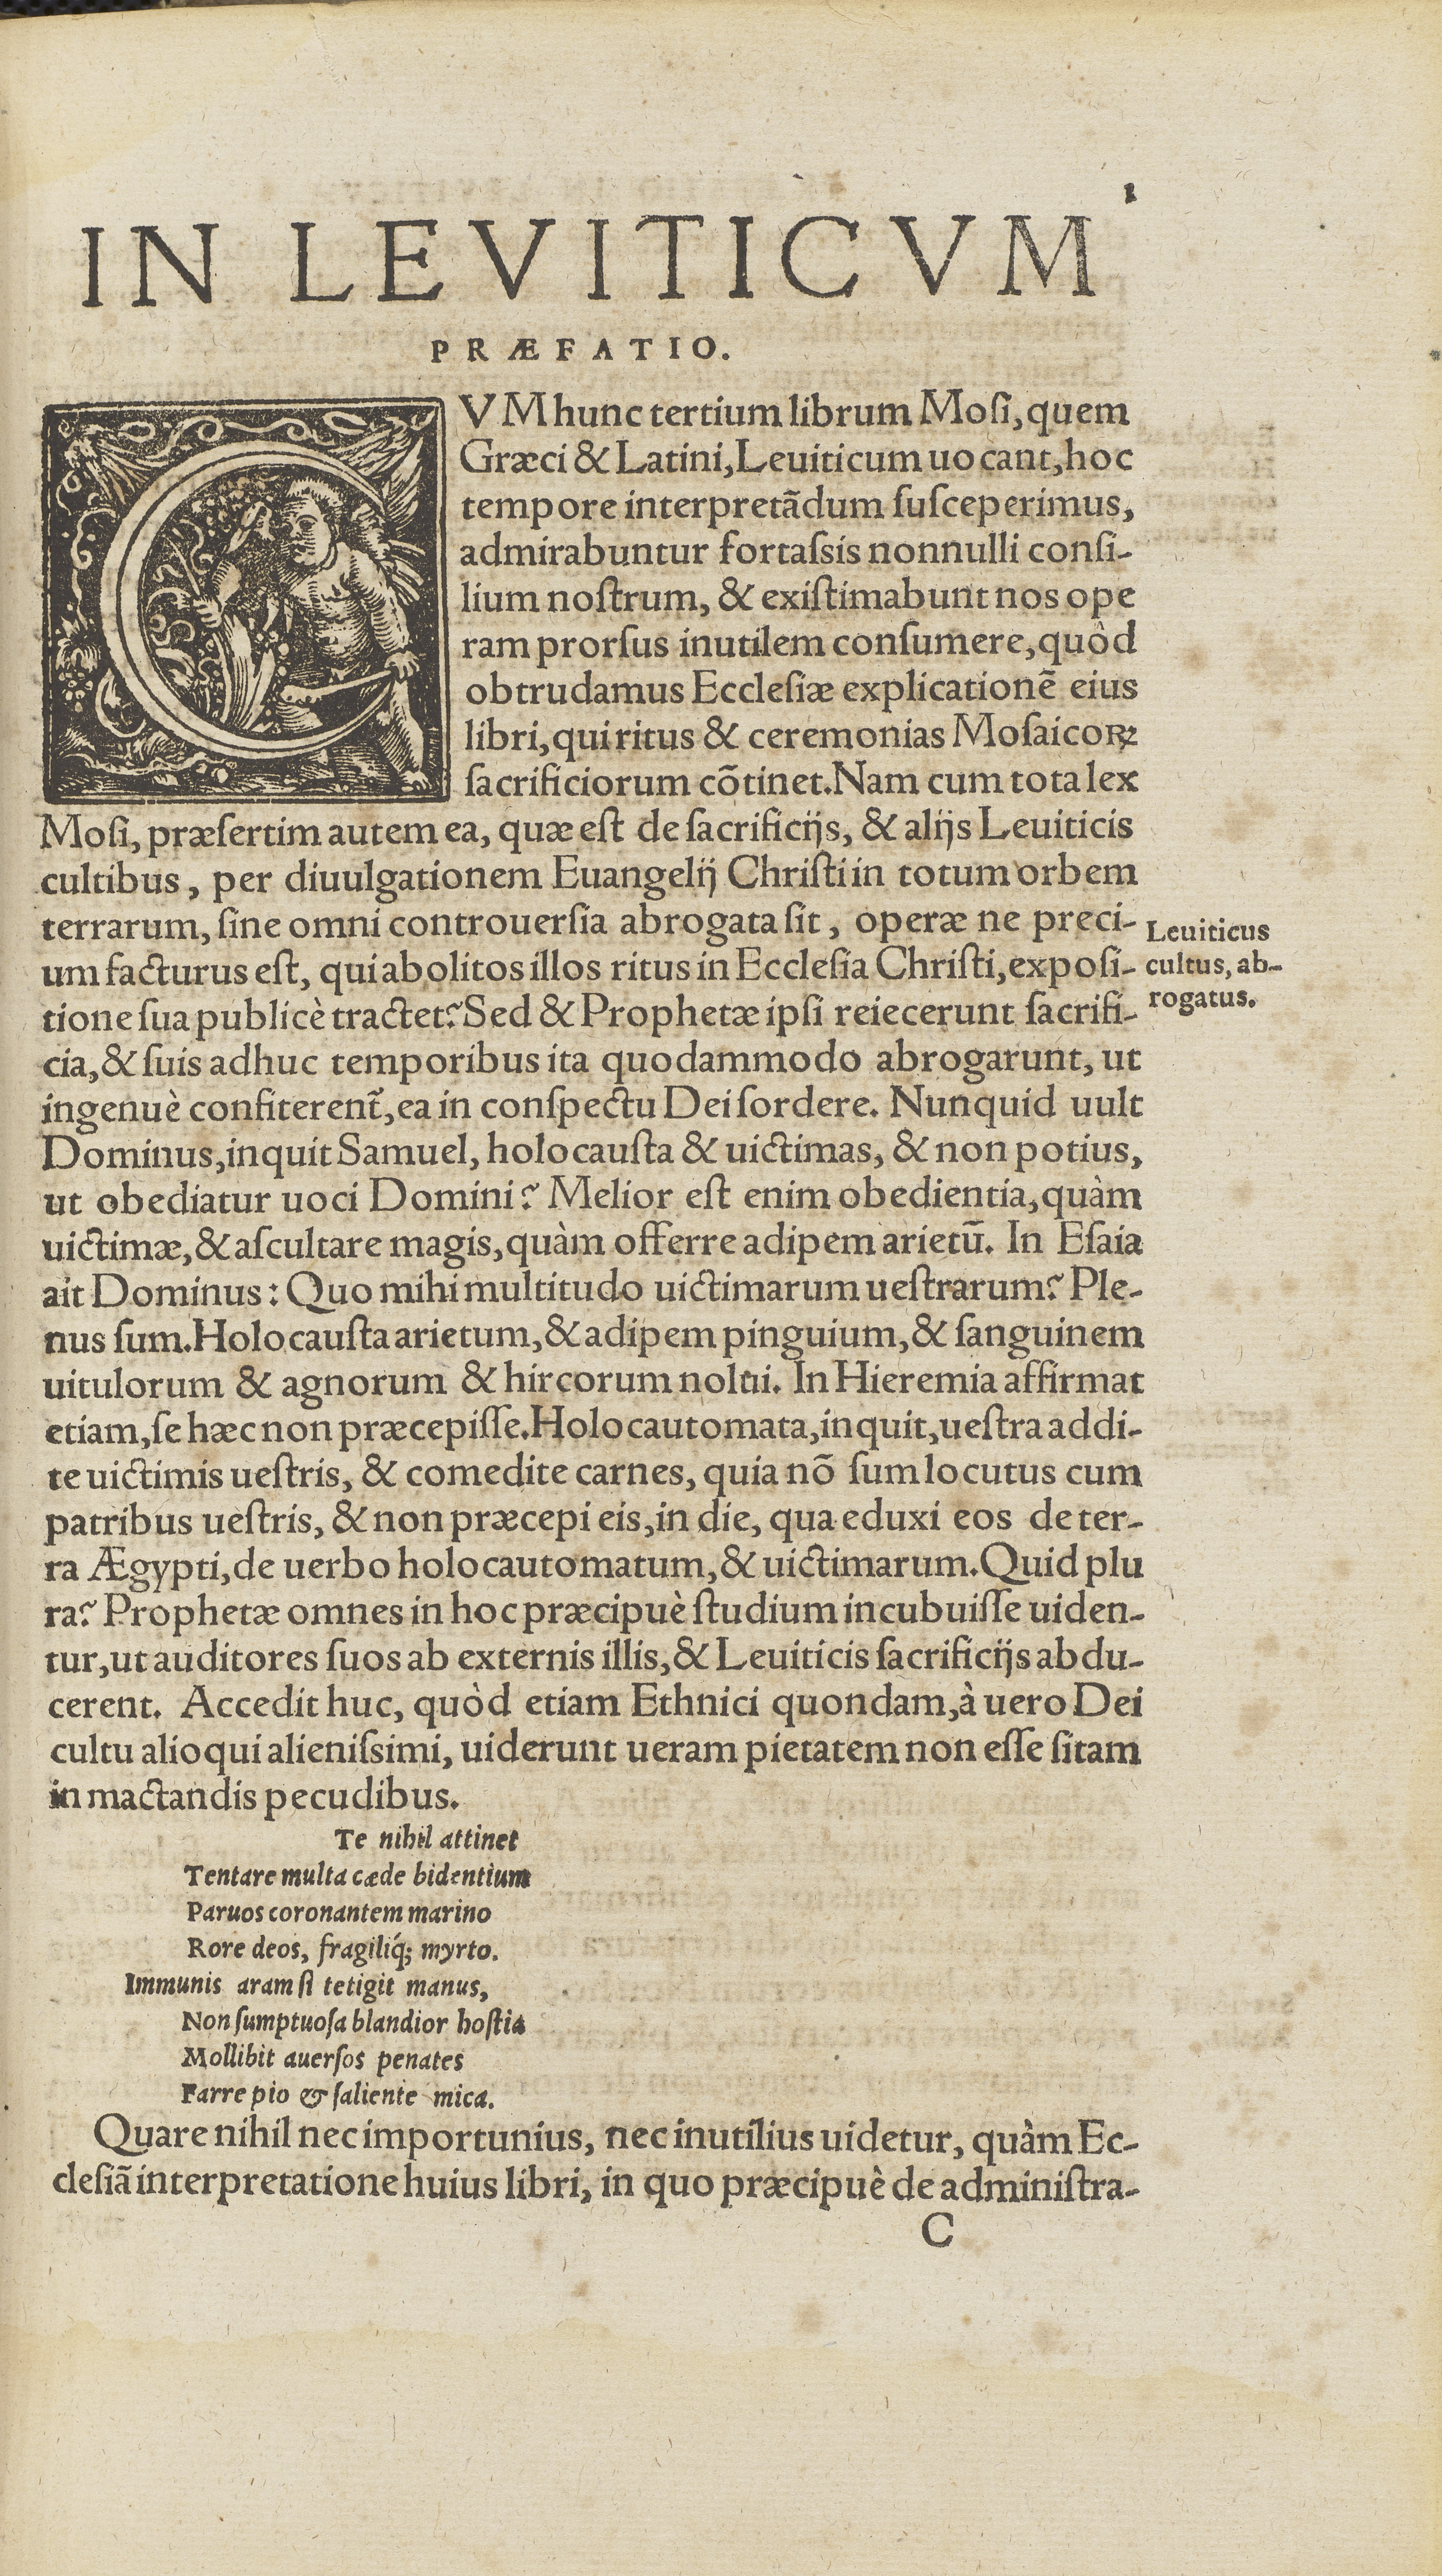 1
IN LEVITICVM
PRÆFATIO.
CVM hunc tertium librum Mosi, quem
Græci & Latini, Leuiticum uocant, hoc
tempore interpretãdum susceperimus,
admirabuntur fortassis nonnulli consi-
lium nostrum, & existimabunt nos ope
ram prorsus inutilem consumere, quòd
obtrudamus Ecclesiæ explicationẽ eius
libri, qui ritus & ceremonias Mosaicoꝝ
sacrificiorum cõtinet. Nam cum tota lex
Mosi, præsertim autem ea, quæ est de sacrificijs, & alijs Leuiticis
cultibus, per diuulgationem Euangelij Christi in totum orbem
terrarum, sine omni controuersia abrogata sit, operæ ne preci-
um facturus est, qui abolitos illos ritus in Ecclesia Christi, exposi-
tione sua publicè tractet? Sed & Prophetæ ipsi reiecerunt sacrifi-
cia, & suis adhuc temporibus ita quodammodo abrogarunt, ut
ingenuè confiterent᷑, ea in conspectu Dei sordere. Nunquid uult
Dominus, inquit Samuel, holocausta & uictimas, & non potius,
ut obediatur uoci Domini? Melior est enim obedientia, quàm
uictimæ, & ascultare magis, quàm offerre adipem arietũ. In Esaia
ait Dominus: Quo mihi multitudo uictimarum uestrarum? Ple-
nus sum. Holocausta arietum, & adipem pinguium, & sanguinem
uitulorum & agnorum & hircorum nolui. In Hieremia affirmat
etiam, se hæc non præcepisse. Holocautomata, inquit, uestra addi-
te uictimis uestris, & comedite carnes, quia nõ sum locutus cum
patribus uestris, & non præcepi eis, in die, qua eduxi eos de ter-
ra Ægypti, de uerbo holocautomatum, & uictimarum. Quid plu
ra? Prophetæ omnes in hoc præcipuè studium incubuisse uiden-
tur, ut auditores suos ab externis illis, & Leuiticis sacrificijs abdu-
cerent. Accedit huc, quòd etiam Ethnici quondam, à uero Dei
cultu alioqui alienissimi, uiderunt ueram pietatem non esse sitam
in mactandis pecudibus.
Te nihil attinet
Tentare multa cæde bidentium
Paruos coronantem marino
Rore deos, fragiliq́; myrto.
Immunis aram si tetigit manus,
Non sumptuosa blandior hostia
Mollibit auersos penates
Farre pio & saliente mica.
Quare nihil nec importunius, nec inutilius uidetur, quàm Ec-
clesiã interpretatione huius libri, in quo præcipuè de administra-
C
Leuiticus
cultus, ab-
rogatus.